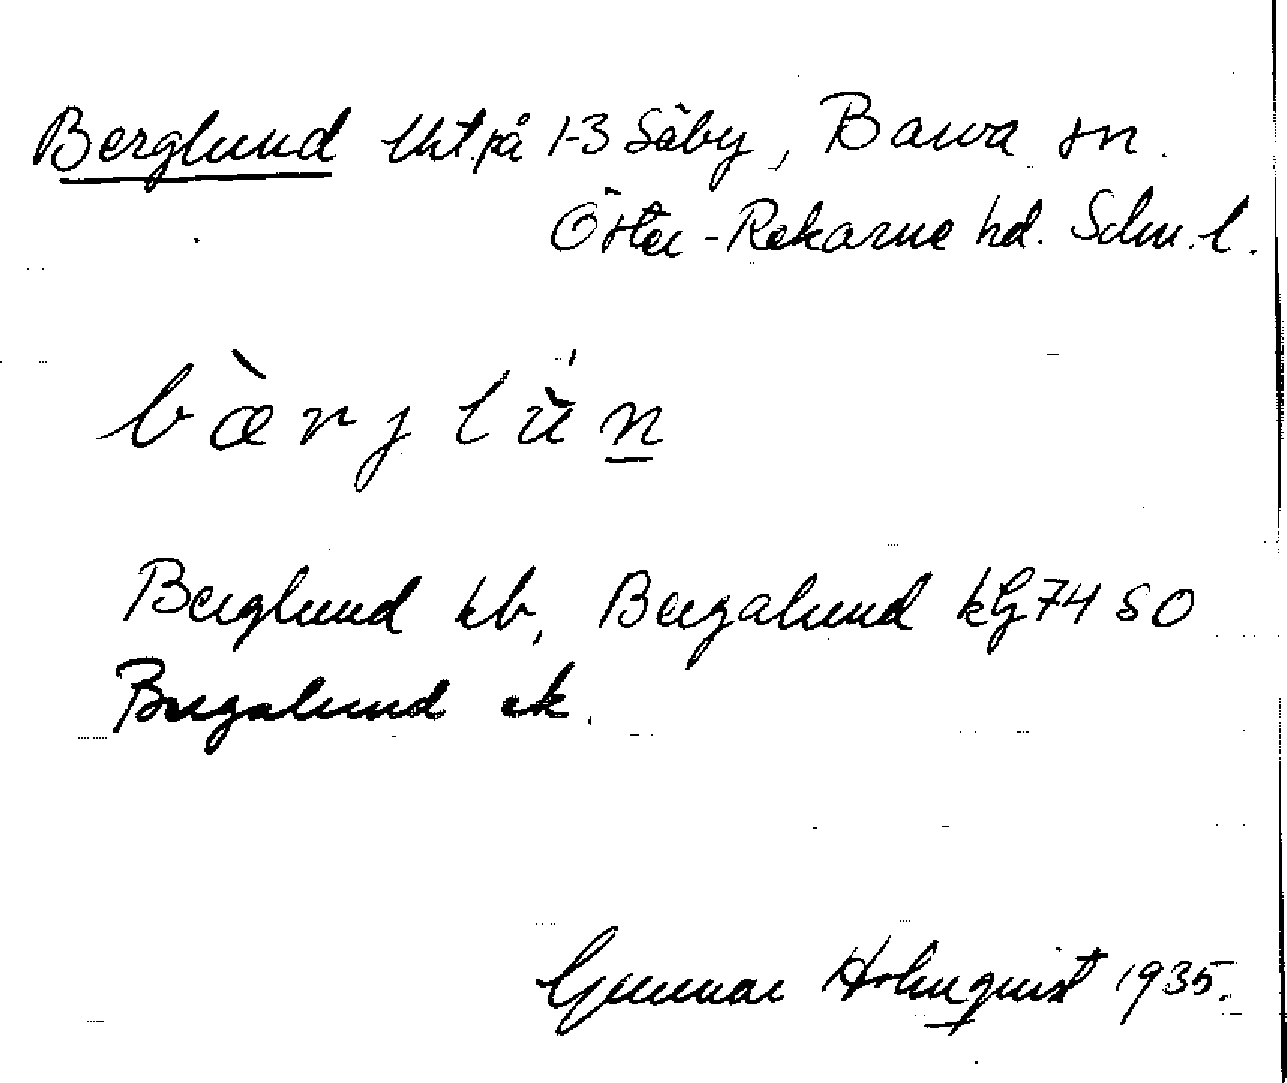 Berglund lht. på 1-3 Säby, Barva sn.
Öster-Rekarne hd. Sdm. l.
bæ̀rjlùn
Berglund kb, Bergalund kG74 SO
Bergalund ek.
Gunnar Holmquist 1935.